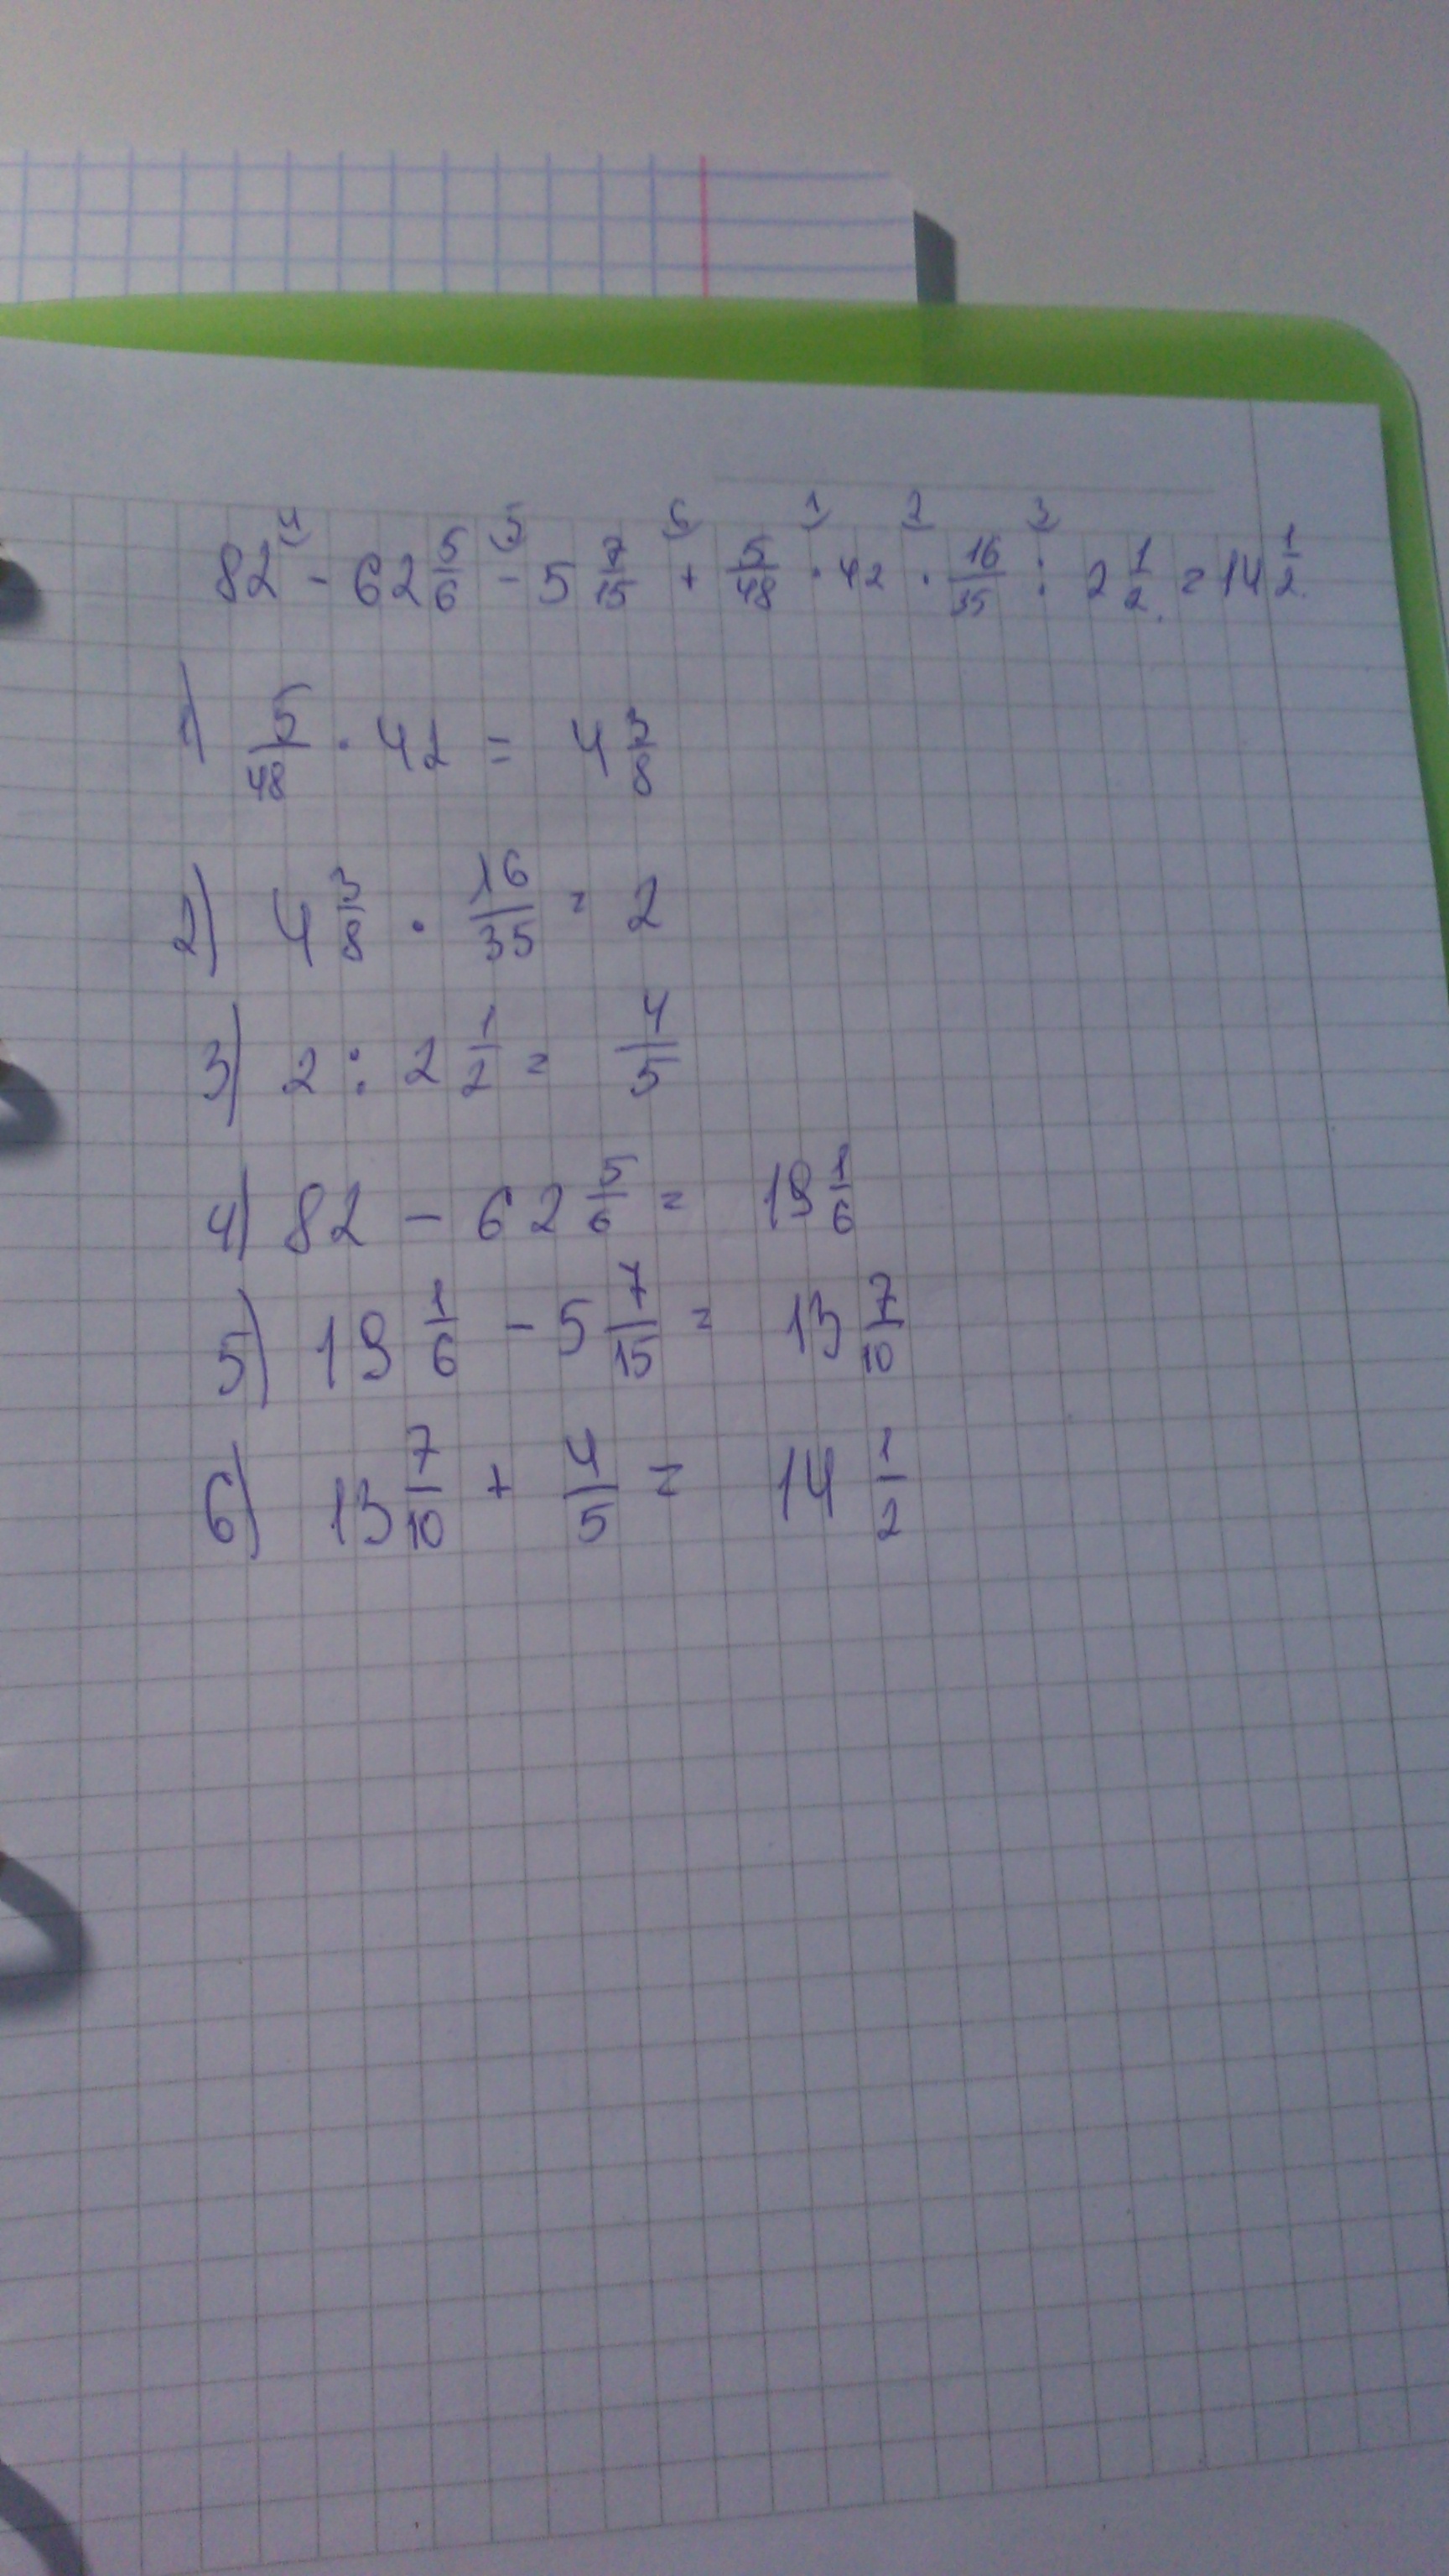 4 5 6 1 2 3
82 - 62 5/6 - 5 7/15 + 5/48 · 42 · 16/35 : 2 1/2 = 14 1/2
1) 5/48 · 42 = 4 3/8
2) 4 3/8 · 16/35 = 2
3) 2 : 2 1/2 = 4/5
4) 82 - 62 5/6 = 19 1/6
5) 19 1/6 - 5 7/15 = 13 7/10
6) 13 7/10 + 4/5 = 14 1/2